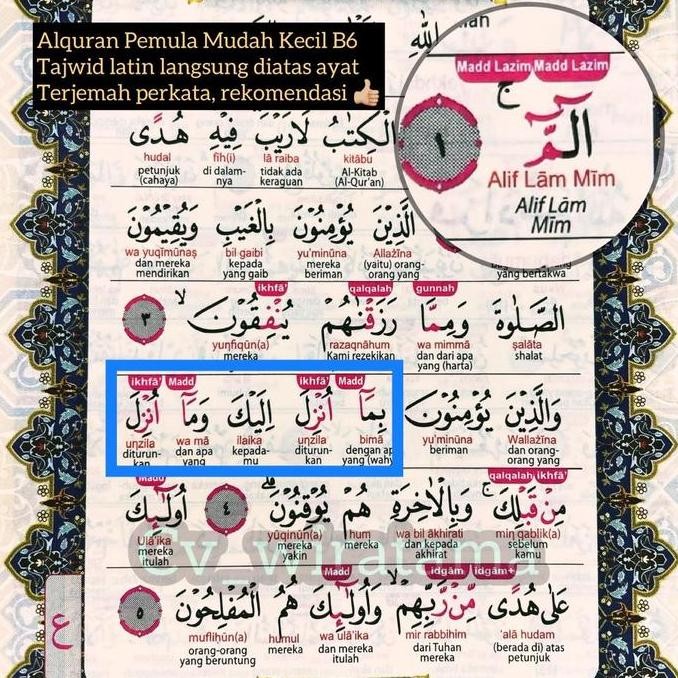 Alquran Pemula Mudah Kecil B6
Tajwid latin langsung diatas ayat
Terjemah perkata, rekomendasi 👍🏼
اللّٰهِ
Madd Lazim Madd Lazim
الۤمّۤ ۚ ١
Alif Lām Mīm
Alif Lām
Mīm
الْكِتٰبُ لَا رَيْبَ فِيْهِ هُدًى
kitābu lā raiba fīh(i) hudal
Al-Kitab tidak ada di dalam- petunjuk
(Al-Qur'an) keraguan nya (cahaya)
الَّذِيْنَ يُؤْمِنُوْنَ بِالْغَيْبِ وَيُقِيْمُوْنَ
Allażīna yu'minūna bil gaibi wa yuqīmūnaṣ
(yaitu) orang- mereka kepada dan mereka
yang bertakwa orang yang beriman yang gaib mendirikan
gunnah qalqalah ikhfā'
الصَّلٰوةَ وَمِمَّا رَزَقْنٰهُمْ يُنْفِقُوْنَ ۙ ٣
ṣalāta wa mimmā razaqnāhum yunfiqūn(a)
shalat dan dari apa Kami rezekikan mereka
yang (harta)
Madd ikhfā' Madd ikhfā'
وَالَّذِيْنَ يُؤْمِنُوْنَ بِمَآ اُنْزِلَ اِلَيْكَ وَمَآ اُنْزِلَ
Wallażīna yu'minūna bimā unzila ilaika wa mā unzila
dan orang- beriman dengan ap diturun- kepada- dan apa diturun-
orang yang yang (wahy kan mu yang kan
ikhfā' qalqalah Madd
مِنْ قَبْلِكَ ۚ وَبِالْاٰخِرَةِ هُمْ يُوْقِنُوْنَ ۗ ٤ اُولٰۤىِٕكَ
min qablik(a) wa bil ākhirati hum yūqinūn(a) Ulā'ika
sebelum dan kepada mereka mereka mereka
kamu akhirat yakin itulah
cv_wiratama
idgām+ idgām Madd
عَلٰى هُدًى مِّنْ رَّبِّهِمْ ۙ وَاُولٰۤىِٕكَ هُمُ الْمُفْلِحُوْنَ ٥
'alā hudam mir rabbihim wa ulā'ika humul mufliḥūn(a)
(berada di) atas dari Tuhan dan mereka mereka orang-orang
petunjuk mereka itulah yang beruntung
ع